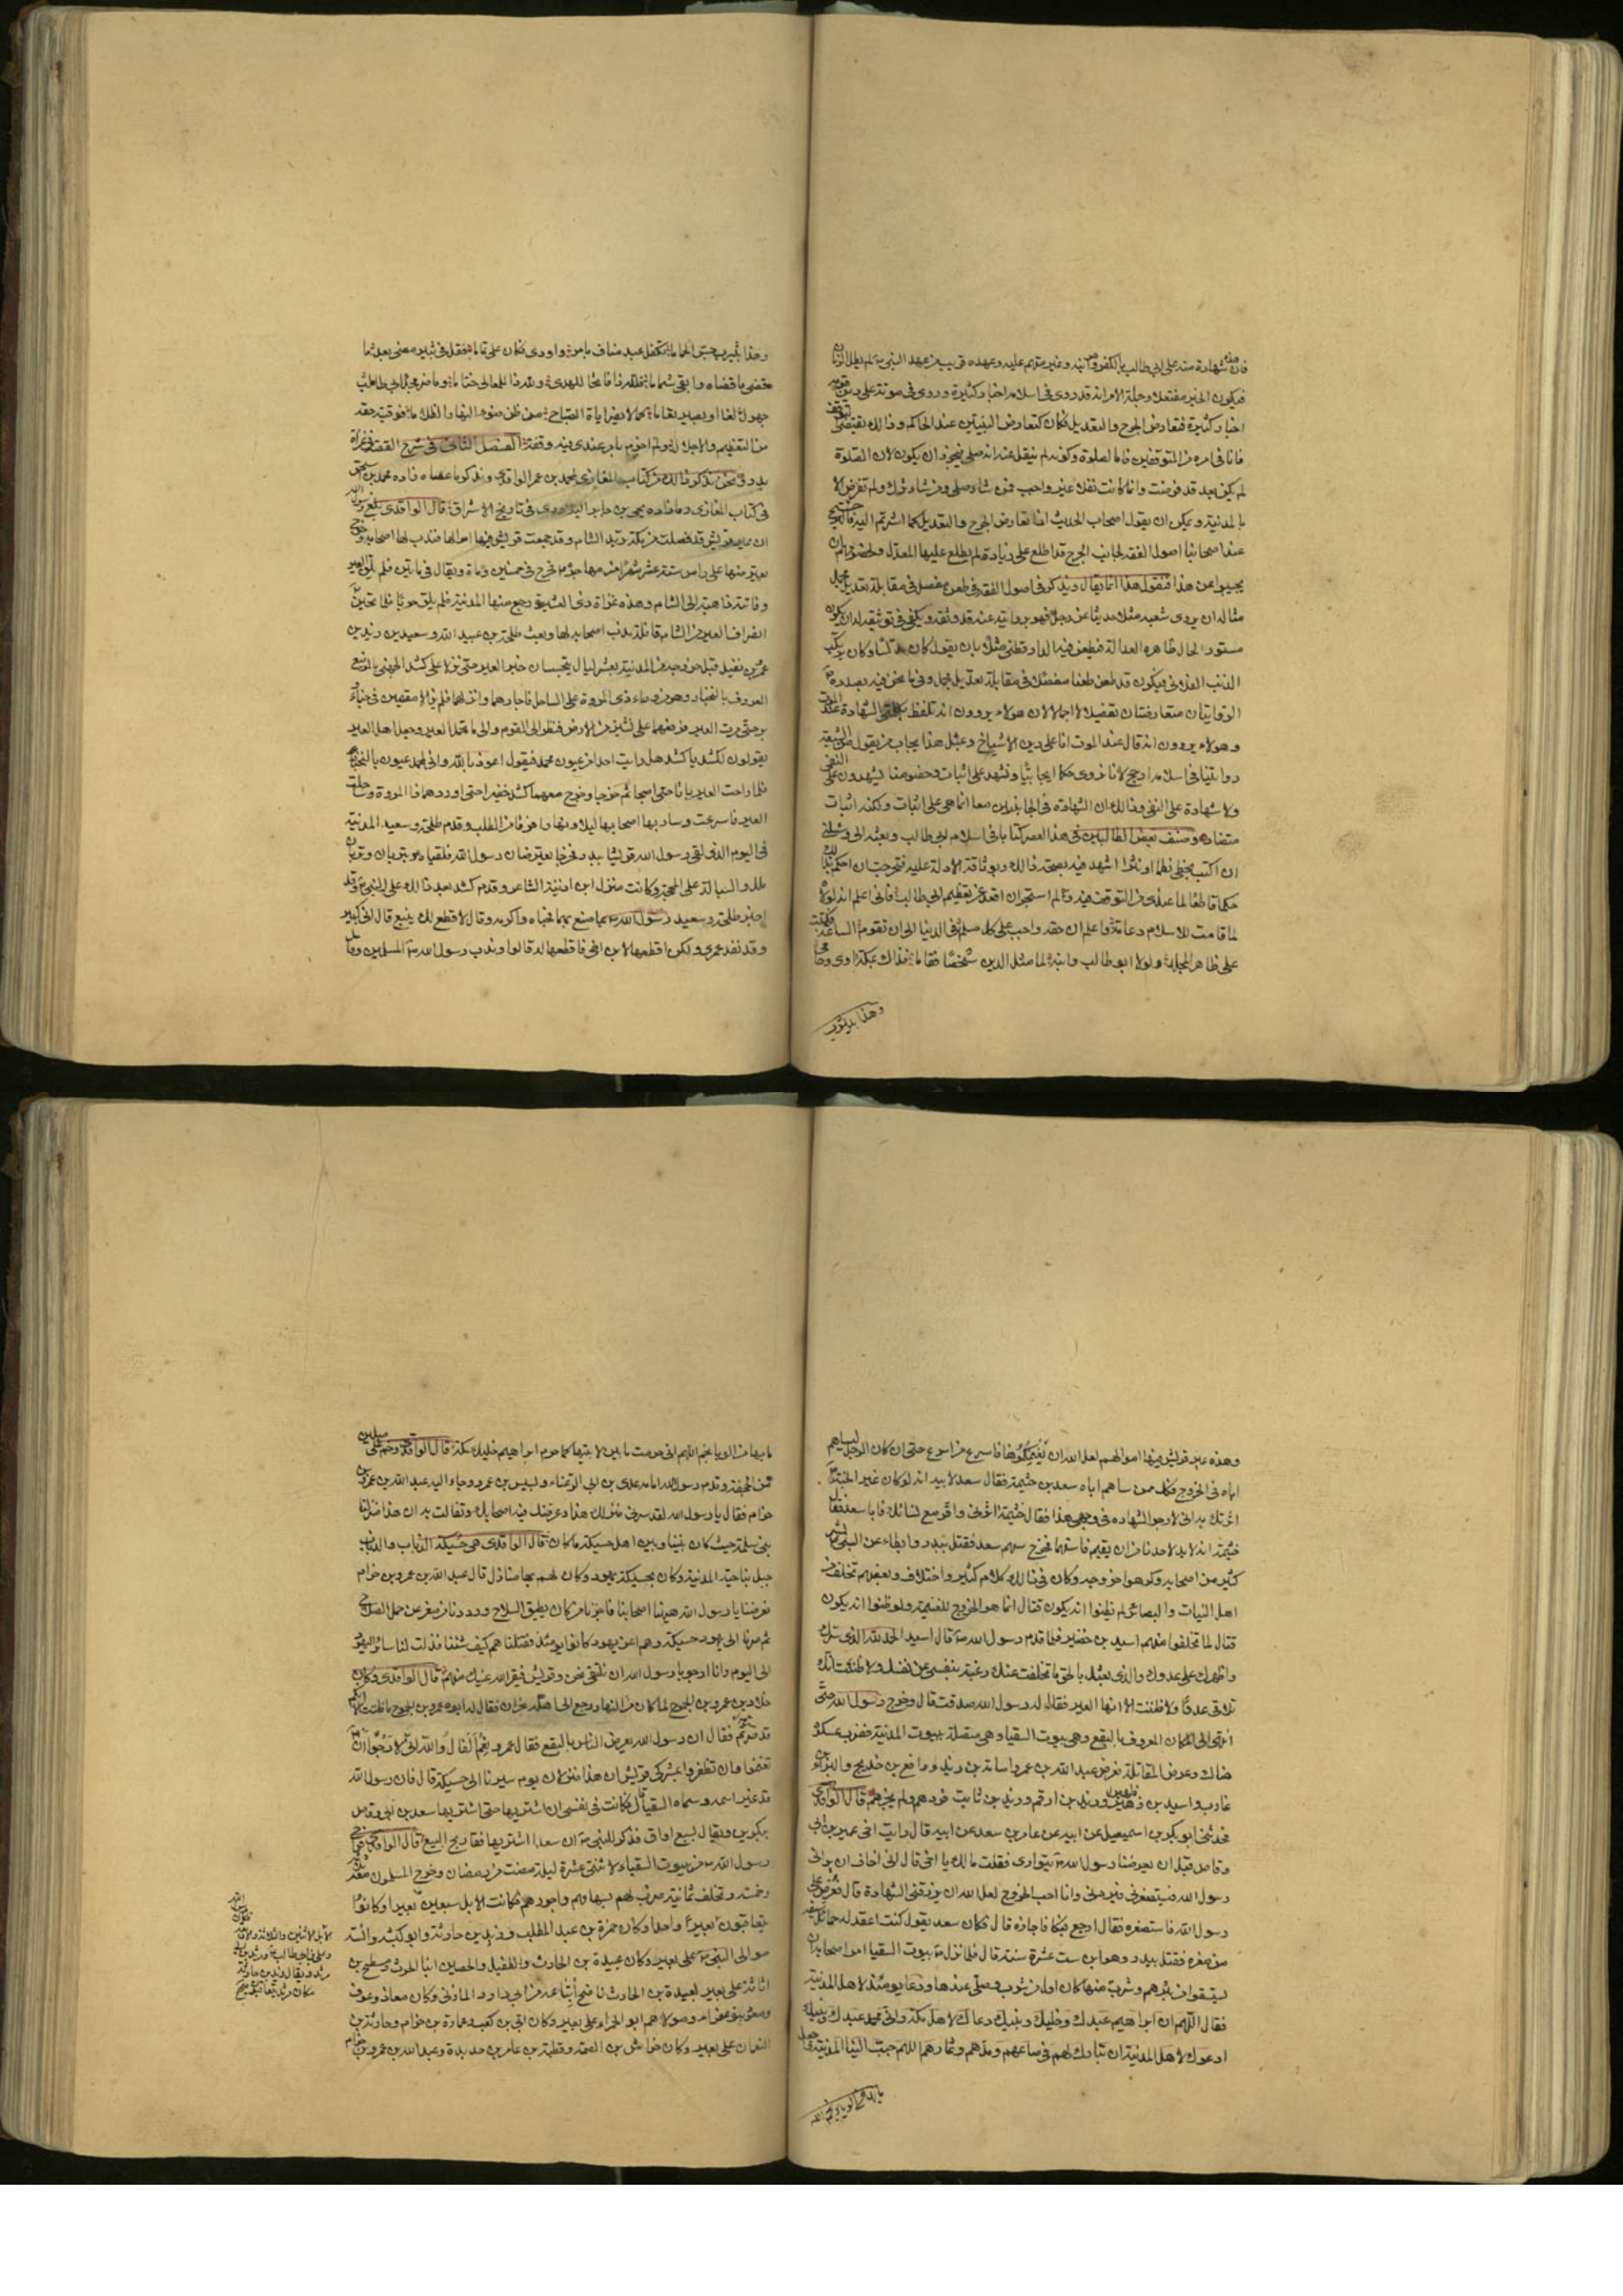 فان هذه شهادة منه على ابي طالب بالكفر وهو ابنه وغير متهم عليه وعهده قريب من عهد النبي ص لم يطل الزمان
فيكون الخبر مفتعلا وجملة الامر انه قد روى في اسلامه اخبار كثيرة وروى في موته على دين قومه
اخبار كثيرة فتعارض الجرح والتعديل فكان كتعارض البينتين عند الحاكم وذلك يقتضي التوقف
فانا في امره من المتوقفين فاما الصلوة وكونه لم ينقل عنه انه صلى فيجوز ان يكون لان الصلوة
لم يكن بعد قد فرضت وانما كانت نفلا غير واجب فمن شاء صلى ومن شاء ترك ولم تفرض الا
بالمدينة ويمكن ان يقول اصحاب الحديث اذا تعارض الجرح والتعديل كما اشرتم اليه فالترجيح
عند اصحابنا اصول الفقه لجانب الجرح قد اطلع على زيادة لم يطلع عليها المعدل ولخصومهم ان
يجيبوا عن هذا فنقول هذا انما يقال ويذكر في اصول الفقه في طعن مفصل في مقابلة تعديل مجمل
مثاله ان يروى شعبه مثلا حديثا عن رجل فهو بروايته عنه قد وثقه ويكفي في توثيقه له ان يكون
مستور الحال ظاهره العدالة فيطعن فيه الدارقطني مثلا بان يقول كان مدلسا وكان يرتكب
الذنب الفلاني فيكون قد طعن طعنا مفصلا في مقابلة تعديل مجمل وفيما نحن فيه بصدده
الروايتان متعارضتان تفصيلا لا اجمالا لان هولاء يروون انه تلفظ بكلمتي الشهادة عند الموت
وهولاء يروون انه قال عند الموت انا على دين الاشياخ وبمثل هذا يجاب من يقول من الشيعة
روايتنا في اسلامه ارجح لانا نروى حكما ايجابيا ونشهد على اثبات وخصومنا يشهدون على النفي
ولا شهادة على النفي وذلك ان الشهادة في الجانبين معا انما هي على اثبات ولكنه اثبات
متضاد وصنف بعض الطالبيين في هذا العصر كتابا في اسلام ابي طالب وبعثه الي وسئلني
ان اكتب بخطي نظما او نثرا اشهد فيه بصحة ذلك وبوثاقة الادلة عليه فتحرجت ان احكم بذلك
حكما قاطعا لما عندي من التوقف فيه ولم استجز ان اقعد عن تعظيم ابي طالب فاني اعلم انه لولاه
لما قامت للاسلام دعامة واعلم ان حقه واجب على كل مسلم في الدنيا الى ان تقوم الساعة فكتبت
على ظاهر المجلد ولولا ابو طالب وابنه لما مثل الدين شخصا فقاما فذاك بمكة اوى وحامى
وهذا بيثرب
وهذا بيثرب جس الحماما تكفل عبد مناف بامر واودى فكان على تماما فقل في ثبير مضى بعد ما
قضى ما قضاه وابقى شماما فلله ذا فاتحا للهدى ولله ذا للمعالي ختاما وما ضر مجد ابي طالب
جهول لغا او بصير تعاما كما لا يضر اياة الصباح من ظن ضوء النهار الظلاما فوفيته حقه
من التعظيم والاجلال ولم اجزم بامر عندي فيه وقفة الفصل الثاني في شرح القصة في غزاة
بدر ونحن نذكر ذلك من كتاب المغازي لمحمد بن عمر الواقدي ونذكر ما عساه زاده محمد بن اسحق
في كتاب المغازي وما زاده يحيى بن جابر البلاذري في تاريخ الاشراف قال الواقدي بلغ رسول الله
ان عير قريش قد فصلت من مكة تريد الشام وقد جمعت قريش فيها اموالها فندب لها اصحابه وخرج
يعترضها على راس ستة عشر شهرا من مهاجره فخرج في خمسين وماة ويقال في مايتين فلم يلق العير
وفاتته ذاهبة الى الشام وهذه غزاة ذي العشيرة رجع منها المدينة فلم يلق حربا فلما تحين
انصراف العير من الشام قافلة ندب اصحابه لها وبعث طلحة بن عبيد الله وسعيد بن زيد بن
عمرو بن نفيل قبل خروجه من المدينة بعشر ليال يتجسسان خبر العير حتى نزلا على كشد الجهني بالموضع
المعروف بالنخبار وهو من وراء ذي المروة على الساحل فاجارهما وانزلهما فلم يزالا مقيمين في خباء
وبر حتى مرت العير فرفعهما على نشز من الارض فنظرا الى القوم والى ما تحمل العير وجعل اهل العير
يقولون لكشد يا كشد هل رايت احدا من عيون محمد فيقول اعوذ بالله وانى لمحمد عيون بالنخبار
فلما راحت العير باتا حتى اصبحا ثم خرجا وخرج معهما كشد خفيرا حتى اوردهما ذا المروة وساحلت
العير فاسرعت وسار بها اصحابها ليلا ونهارا فرقا من الطلب وقدم طلحة وسعيد المدينة
في اليوم الذي لقي رسول الله قريشا ببدر فخرجا يعترضان رسول الله فلقياه بتربان وتربان
بين ملل والسيالة على المحجة وكانت منزل ابن اذينة الشاعر وقدم كشد بعد ذلك على النبي ص وقد
اخبر طلحة وسعيد رسول الله بما صنع بهما فحباه واكرمه وقال الا اقطع لك ينبع قال اني كبير
وقد نفد عمري ولكن اقطعها لابن اخي فاقطعها له قالوا وندب رسول الله ص المسلمين وقال
وهذه عير قريش فيها اموالهم لعل الله ان يغنمكموها فاسرع من اسرع حتى ان كان الرجل ليساهم
اباه في الخروج فكان ممن ساهم اباه سعد بن خثيمة فقال سعد لابيه انه لو كان غير الجنة
اثرتك به اني لارجو الشهاده في وجهي هذا فقال خثيمة اثرني واقر مع نسائك فابى سعد فقال
خثيمة انه لابد لاحدنا من ان يقيم فاستهما فخرج سهم سعد فقتل ببدر وابطاء عن النبي ص بشر
كثير من اصحابه وكرهوا خروجه وكان في ذلك كلام كثير واختلاف وبعضهم تخلف من
اهل النيات والبصائر لم يظنوا انه يكون قتال انما هو الخروج للغنيمة ولو ظنوا انه يكون
قتال لما تخلفوا منهم اسيد بن حضير فلما قدم رسول الله ص قال اسيد الحمد لله الذي سرك
واظهرك على عدوك والذي بعثك بالحق ما تخلفت عنك رغبة بنفسي عن نفسك ولا ظننت انك
تلاقي عدوا ولا ظننت الا انها العير فقال له رسول الله صدقت قال وخرج رسول الله حتى
انتهى الى المكان المعروف بالبقع وهي بيوت السقيا وهي متصلة ببيوت المدينة فضرب عسكره
هناك وعرض المقاتلة فعرض عبد الله بن عمر واسامة بن زيد ورافع بن خديج والبراء بن
عازب واسيد بن ظهير وزيد بن ارقم وزيد بن ثابت فردهم ولم يجزهم قال الواقدي
فحدثني ابو بكر بن اسمعيل عن ابيه عن عامر بن سعد عن ابيه قال رايت اخي عمير بن ابي
وقاص قبل ان يعرضنا رسول الله ص يتوارى فقلت مالك يا اخي قال اني اخاف ان يراني
رسول الله فيستصغرني فيردني وانا احب الخروج لعل الله ان يرزقني الشهادة قال فعرض على
رسول الله فاستصغره فقال ارجع فبكا فاجازه قال فكان سعد يقول كنت اعقد له حمائل سيفه
من صغره فقتل ببدر وهو ابن ست عشرة سنة قال فلما نزل ص بيوت السقيا امر اصحابه ان
يستقوا من بئرهم وشرب منها كان اول من شرب وصلى عندها ودعا يومئذ لاهل المدينة
فقال اللهم ان ابراهيم عبدك وخليلك ونبيك دعاك لاهل مكة واني محمد عبدك ونبيك
ادعوك لاهل المدينة ان تبارك لهم في صاعهم ومدهم وثمارهم اللهم حبب الينا المدينة واجعل
ما بها من الوباء بخم اللهم
ما بها من الوبا بخم اللهم اني حرمت ما بين لابتيها كما حرم ابراهيم خليلك مكة قال الواقدي وخم على ميلين
من الجحفة وقدم رسول الله امامه عدي بن ابي الزغباء وبسبس بن عمرو وجاء اليه عبد الله بن عمرو بن
حزام فقال يا رسول الله لقد سرني منزلك هذا وعرضك فيه اصحابك وتفالت به ان هذا منزلنا
بني سلمة حيث كان بيننا وبين اهل حسيكة ما كان قال الواقدي هي حسيكة الذباب والذباب
جبل بناحية المدينة وكان بحسيكة يهود وكان لهم بها منازل قال عبد الله بن عمرو بن حزام
فعرضنا يا رسول الله ههنا اصحابنا فاجزنا من كان يطيق السلاح ورددنا من صغر عن حمل السلاح
ثم سرنا الى يهود حسيكة وهم اعز يهود كانوا يومئذ فقتلناهم كيف شئنا فذلت لنا سائر اليهود
الى اليوم وانا ارجو يا رسول الله ان نلتقي نحن وقريش فيقر الله عينك منهم قال الواقدي وكان
خلاد بن عمرو بن الجموح لما كان من النهار رجع الى اهله بخربان فقال له ابوه عمرو بن الجموح ما ظننت الا انكم
قد سرتم فقال ان رسول الله يعرض الناس بالبقع فقال عمرو نعم الفال والله اني لارجو ان
تغنموا وان تظفروا بمشركي قريش ان هذا منزلنا يوم سيرنا الى حسيكة قال فان رسول الله
قد غير اسمه وسماه السقيا قال فكانت في نفسي ان اشتريها حتى اشتريها سعد بن ابي وقاص
ببكرين ويقال بسبع اواق فذكر للنبي ص ان سعدا اشتريها فقال ربح البيع قال الواقدي فراح
رسول الله من بيوت السقياء لاثنتي عشرة ليلة مضت من رمضان وخرج المسلمون معه ثلثمائة
وخمسة وتخلف ثمانية ضرب لهم بسهامهم واجورهم فكانت الابل سبعين بعيرا وكانوا
يتعاقبون بعيرا واحدا وكان حمزة بن عبد المطلب وزيد بن حارثة وابو كبشه وانسه
موالي النبي ص على بعير وكان عبيدة بن الحارث والطفيل والحصين ابنا الحرث ومسطح بن
اثاثة على بعير لعبيدة بن الحارث ناضح ابتاعه من ابي داود المازني وكان معاذ وعوف
ومعوذ بنو عفراء ومولاهم ابو الحمراء على بعير وكان ابي بن كعب وعمارة بن حزام وحارثة بن
النعمان على بعير وكان خراش بن الصمة وقطبة بن عامر بن حديدة وعبد الله بن عمرو بن حزام
الابل الاثنين والثلاثة والاربعة
فكان رسول الله
وعلي بن ابي طالب ومرثد بن ابي
مرثد ويقال زيد بن حارثة
مكان مرثد يتعاقبون بعيرا